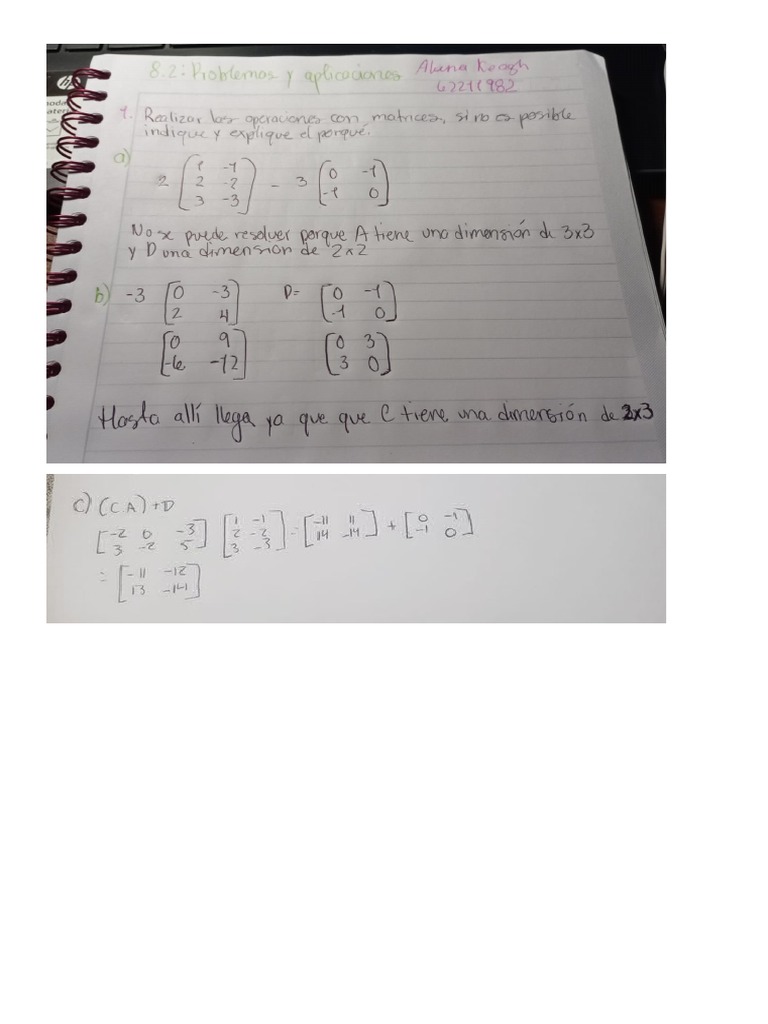 8.2: Problemas y aplicaciones
62211982
1. Realizar las operaciones con matrices, si no es posible
indique y explique el porqué.
a)
2 [1 -1
2 -2
3 -3] - 3 [0 -1
-1 0]
No se puede resolver porque A tiene una dimensión de 3x3
y D una dimension de 2x2
b) -3 [0 -3
2 4] D= [0 -1
-1 0]
[0 9
-6 -12] [0 3
3 0]
Hasta allí llega ya que que C tiene una dimensión de 2x3
c) (C.A)+D
[-2 0 -3
3 -2 5] [1 -1
2 -2
3 -3] = [-11 11
14 -14] + [0 -1
-1 0]
= [-11 -12
13 -14]